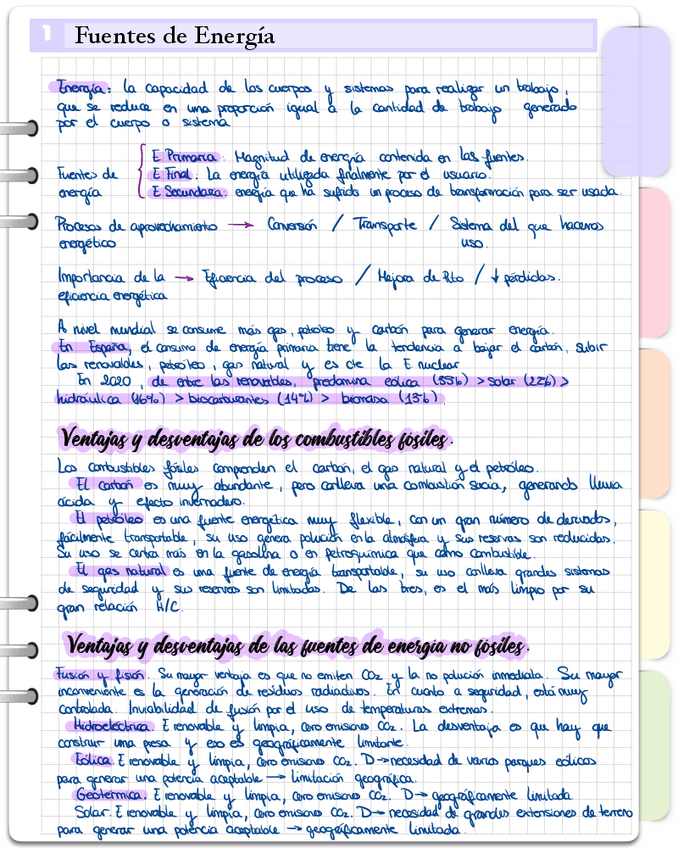 1 Fuentes de Energía
Energía: la capacidad de los cuerpos y sistemas para realizar un trabajo,
que se reduce en una proporción igual a la cantidad de trabajo generado
por el cuerpo o sistema
E Primaria: Magnitud de energía contenida en las fuentes.
Fuentes de energía
E Final: La energía utilizada finalmente por el usuario.
E Secundaria: energía que ha sufrido un proceso de transformación para ser usada.
Procesos de aprovechamiento → Conversión / Transporte / Sistema del que hacemos
energético uso.
Importancia de la → Eficiencia del proceso / Mejora de Rto / ↓ pérdidas.
eficiencia energética
A nivel mundial se consume más gas, petróleo y carbón para generar energía.
En España, el consumo de energía primaria tiene la tendencia a bajar el carbón, subir
las renovables, petróleo, gas natural y es cte la E nuclear
En 2020, de entre las renovables, predomina eólica (33%) > solar (22%) >
hidráulica (16%) > biocarburantes (14%) > biomasa (13%).
Ventajas y desventajas de los combustibles fósiles.
Los combustibles fósiles comprenden el carbón, el gas natural y el petróleo.
El carbón es muy abundante, pero conlleva una combustión sucia, generando lluvia
ácida y efecto invernadero.
El petróleo es una fuente energética muy flexible, con un gran número de derivados,
fácilmente transportable, su uso genera polución en la atmósfera y sus reservas son reducidas.
Su uso se centra más en la gasolina o en petroquímica que como combustible.
El gas natural es una fuente de energía transportable, su uso conlleva grandes sistemas
de seguridad y sus reservas son limitadas. De los tres, es el más limpio por su
gran relación H/C.
Ventajas y desventajas de las fuentes de energía no fósiles.
Fusión y fisión. Su mayor ventaja es que no emiten CO2 y la no polución inmediata. Su mayor
inconveniente es la generación de residuos radiactivos. En cuanto a seguridad, está muy
controlada. Inviabilidad de fusión por el uso de temperaturas extremas.
Hidroeléctrica. E renovable y limpia, cero emisiones CO2. La desventaja es que hay que
construir una presa y eso es geográficamente limitante.
Eólica. E renovable y limpia, cero emisiones CO2. D→necesidad de varios parques eólicos
para generar una potencia aceptable → limitación geográfica.
Geotérmica. E renovable y limpia, cero emisiones CO2. D→ geográficamente limitada
Solar. E renovable y limpia, cero emisiones CO2. D→ necesidad de grandes extensiones de terreno
para generar una potencia aceptable → geográficamente limitada.